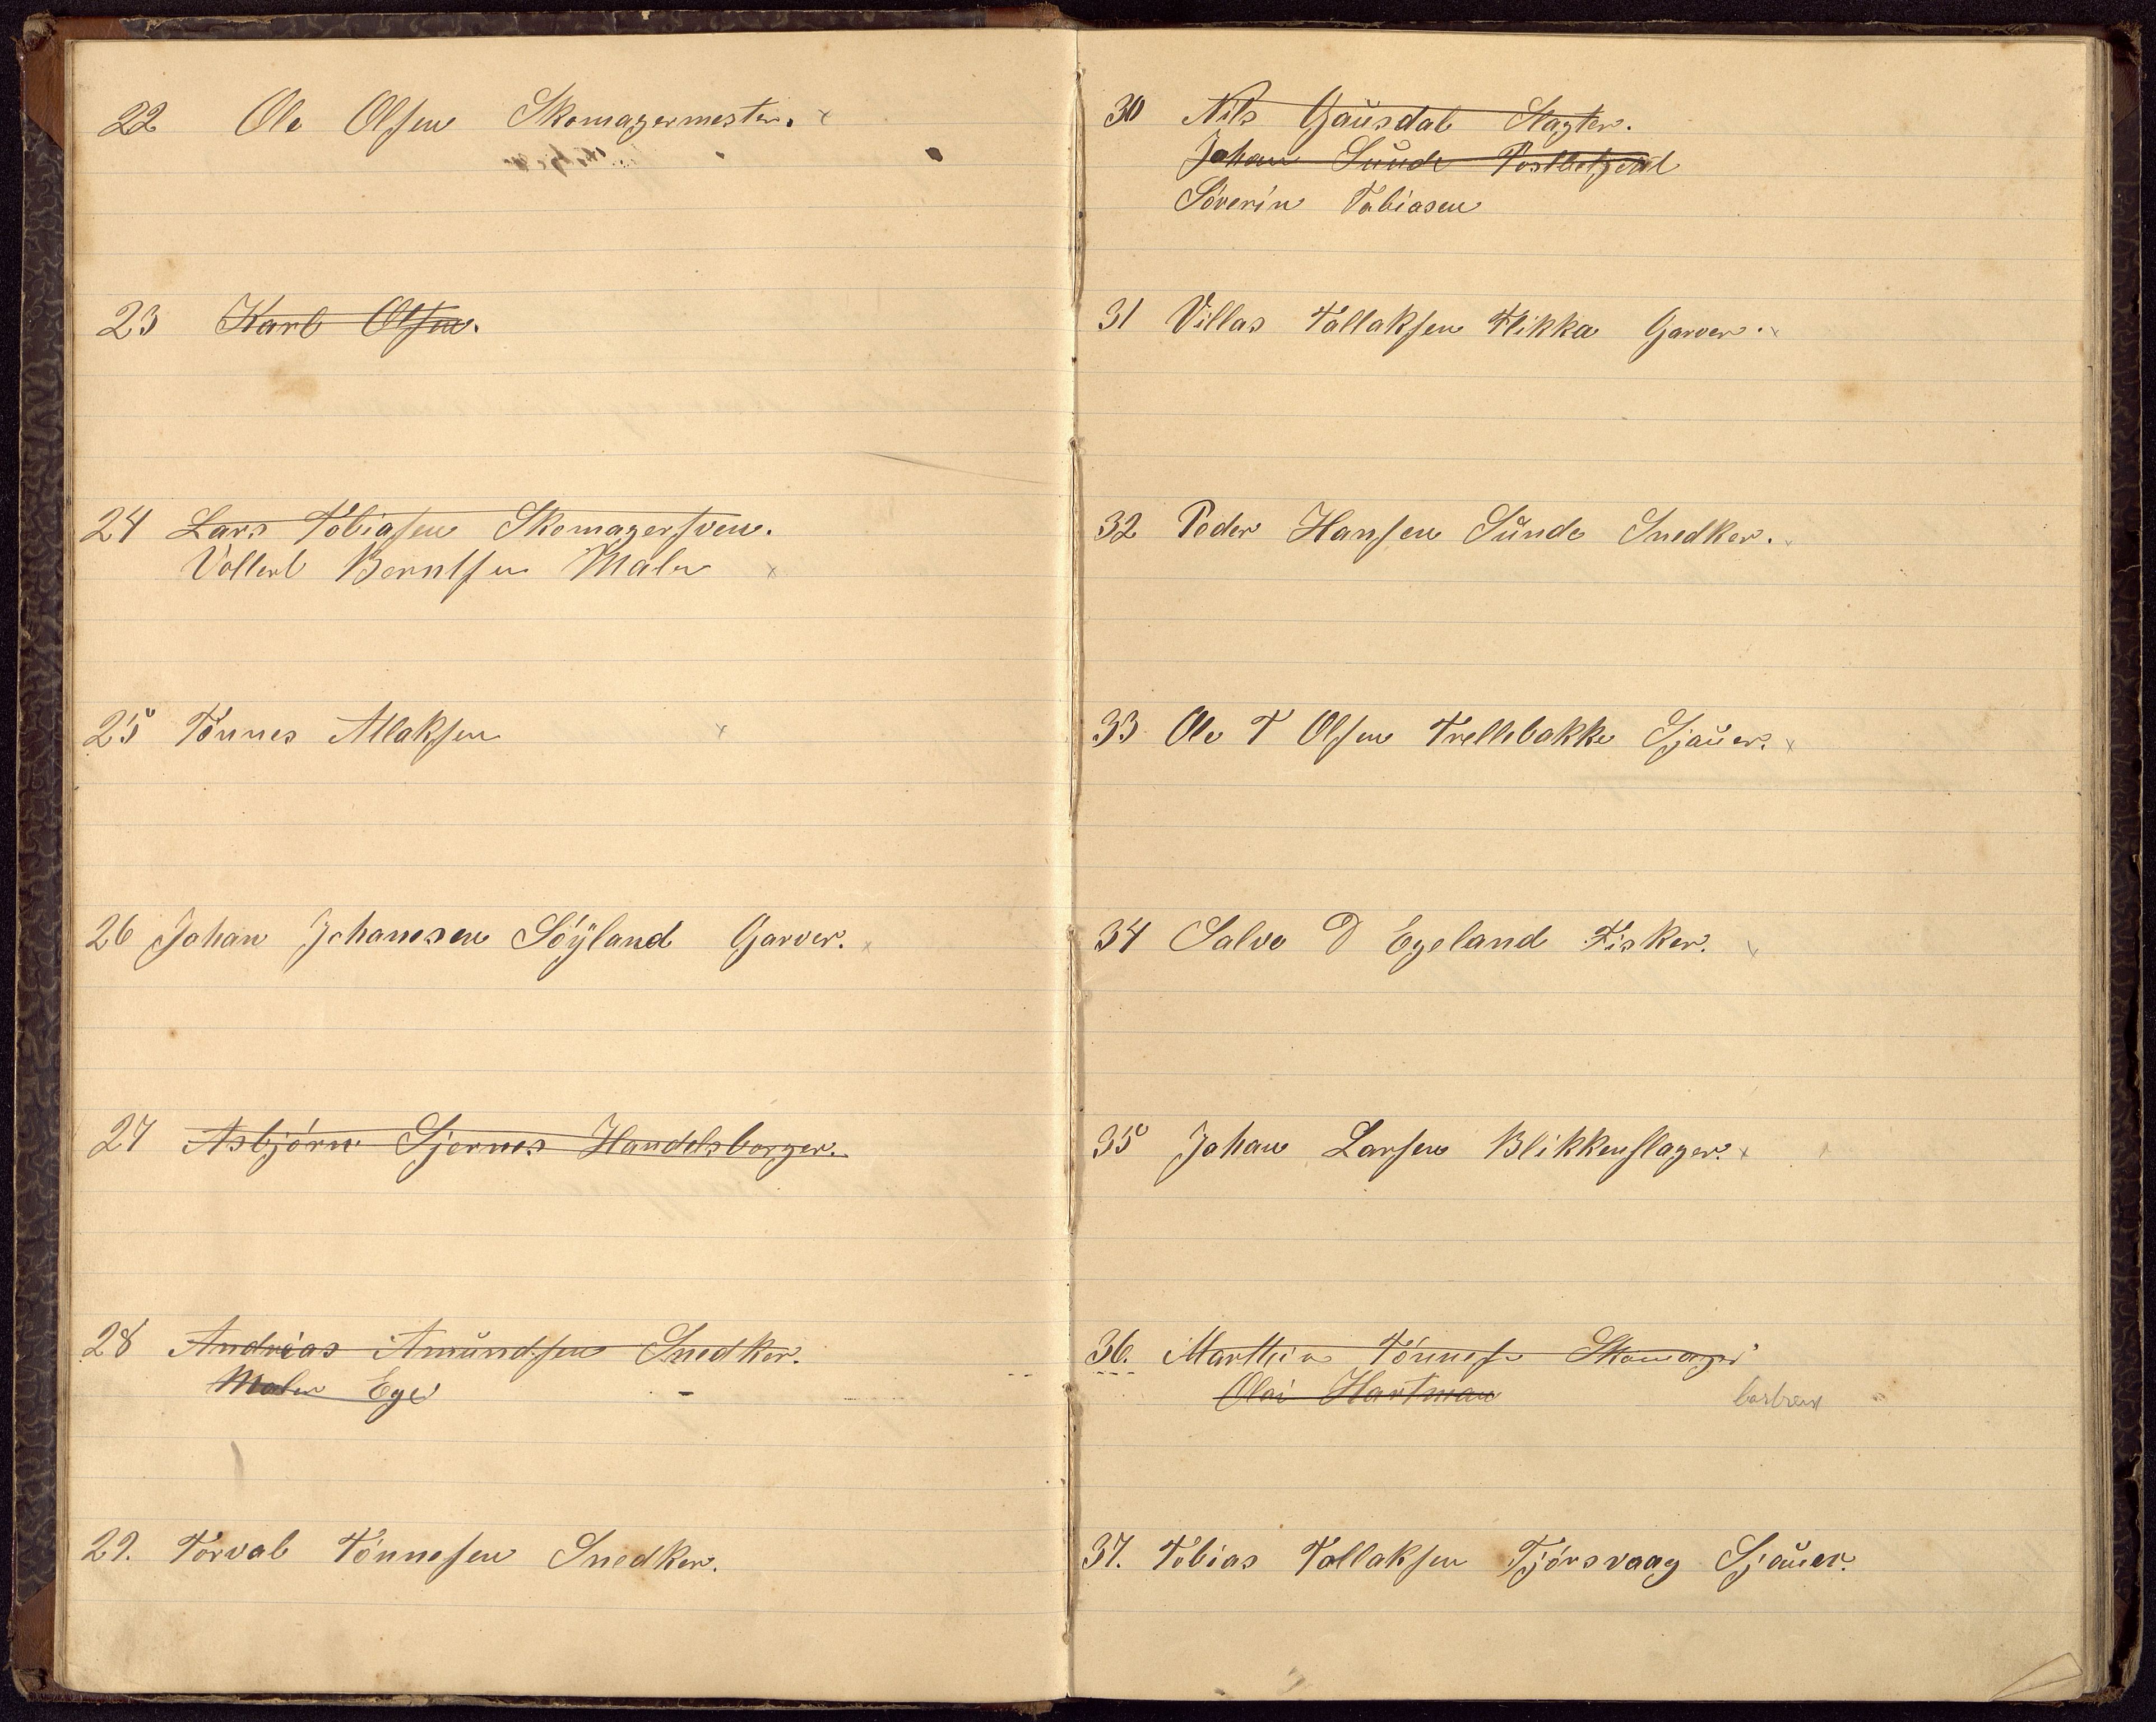 22 Ole Olsen Skomagermester. x
23 Karl Olsen.
24 Lars Tobiasen Skomagersven.
Vollert Berntsen Maler x
25 Tönnes Atlaksen x
26 Johan Johanesen Söÿland Garver. x
27 Asbjörn Sjernes Handelsborger.
28 Andreas Amundsen Snedker.
Maler Ege -
29. Torval Tönnesen Snedker.
30 Nils Gausdal Slagter.
Johan Sunde
Söverin Tobiasen
31 Villas Tallaksen Flikka Garver. x
32 Peder Hansen Sunde Snedker. x
33 Ole T Olsen Trellebakke Sjauer. x
34 Salve D Egeland Fisker. x
35 Johan Larsen Blikkenslager. x
36. Marthin Tönnesen Skomager
Olai Hartman
37. Tobias Tallaksen Tjörsvaag Sjauer.